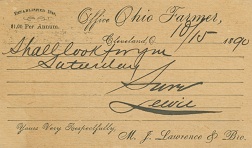 ESTABLISHED 1848.
$1.00 Per Annum.
Office Ohio Farmer,
Cleveland, O. 10/15 1890
Shall look for you
Saturday
Sure
Lewie
Yours Very Respectfully,
M. J. Lawrence & Bro.